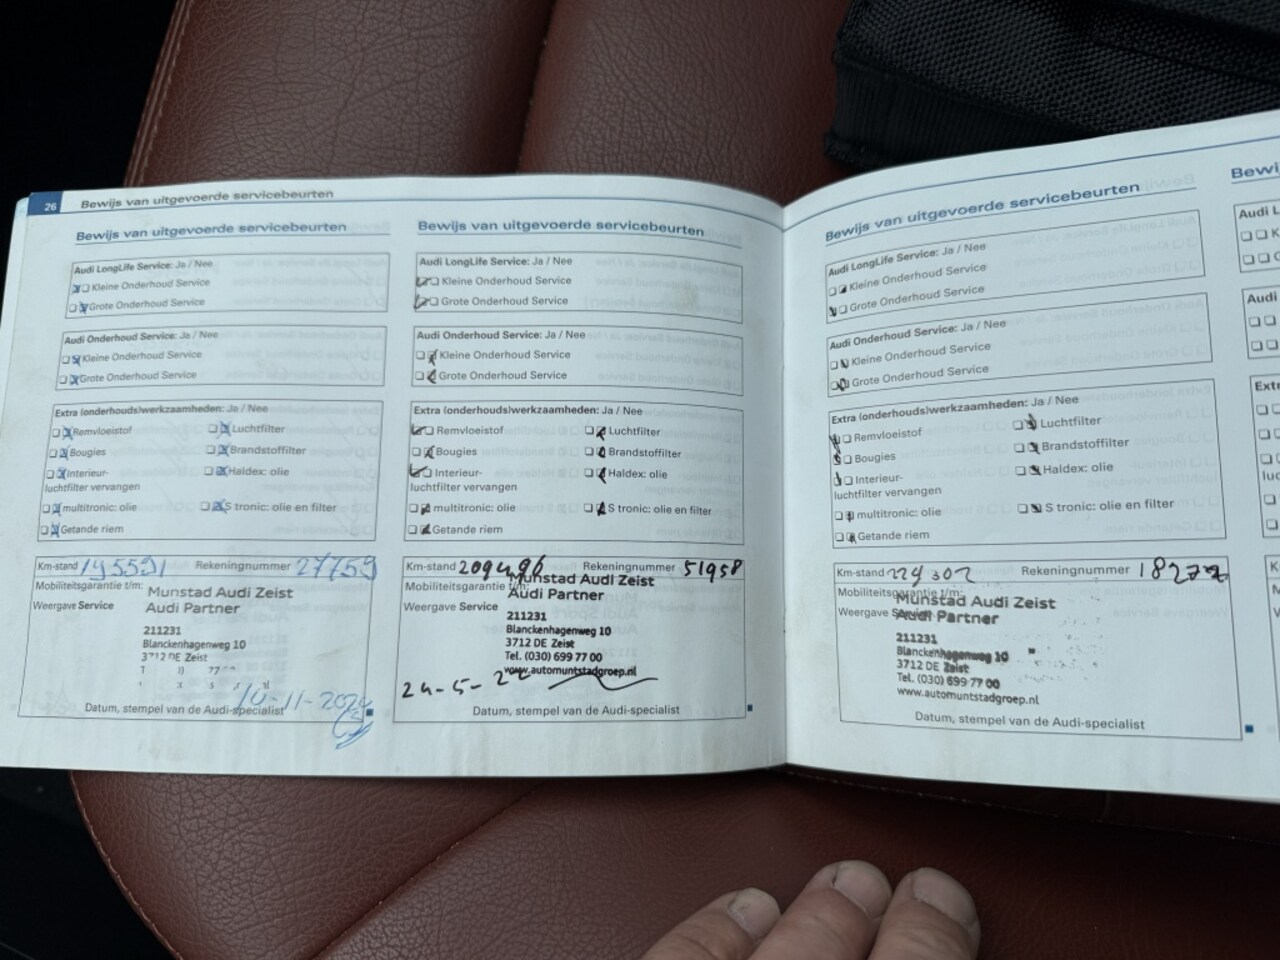 26 Bewijs van uitgevoerde servicebeurten
Bewijs van uitgevoerde servicebeurten
Audi LongLife Service: Ja / Nee
Kleine Onderhoud Service
Grote Onderhoud Service
Audi Onderhoud Service: Ja / Nee
Kleine Onderhoud Service
Grote Onderhoud Service
Extra (onderhouds)werkzaamheden: Ja / Nee
Remvloeistof Luchtfilter
Bougies Brandstoffilter
Interieur- Haldex: olie
luchtfilter vervangen
multitronic: olie S tronic: olie en filter
Getande riem
Km-stand 195591 Rekeningnummer 27759
Mobiliteitsgarantie t/m:
Munstad Audi Zeist
Weergave Service
Audi Partner
211231
Blanckenhagenweg 10
3712 DE Zeist
Datum, stempel van de Audi-specialist
Bewijs van uitgevoerde servicebeurten
Audi LongLife Service: Ja / Nee
Kleine Onderhoud Service
Grote Onderhoud Service
Audi Onderhoud Service: Ja / Nee
Kleine Onderhoud Service
Grote Onderhoud Service
Extra (onderhouds)werkzaamheden: Ja / Nee
Remvloeistof Luchtfilter
Bougies Brandstoffilter
Interieur- Haldex: olie
luchtfilter vervangen
multitronic: olie S tronic: olie en filter
Getande riem
Km-stand 209496 Rekeningnummer 51958
Mobiliteitsgarantie t/m:
Munstad Audi Zeist
Weergave Service
Audi Partner
211231
Blanckenhagenweg 10
3712 DE Zeist
Tel. (030) 699 77 00
www.automuntstadgroep.nl
24-5-22
Datum, stempel van de Audi-specialist
Bewijs van uitgevoerde servicebeurten
Audi LongLife Service: Ja / Nee
Kleine Onderhoud Service
Grote Onderhoud Service
Audi Onderhoud Service: Ja / Nee
Kleine Onderhoud Service
Grote Onderhoud Service
Extra (onderhouds)werkzaamheden: Ja / Nee
Remvloeistof Luchtfilter
Bougies Brandstoffilter
Interieur- Haldex: olie
luchtfilter vervangen
multitronic: olie S tronic: olie en filter
Getande riem
Km-stand 229302 Rekeningnummer
Mobiliteitsgarantie t/m:
Munstad Audi Zeist
Weergave Service
Audi Partner
211231
Blanckenhagenweg 10
3712 DE Zeist
Tel. (030) 699 77 00
www.automuntstadgroep.nl
Datum, stempel van de Audi-specialist
Audi
Audi